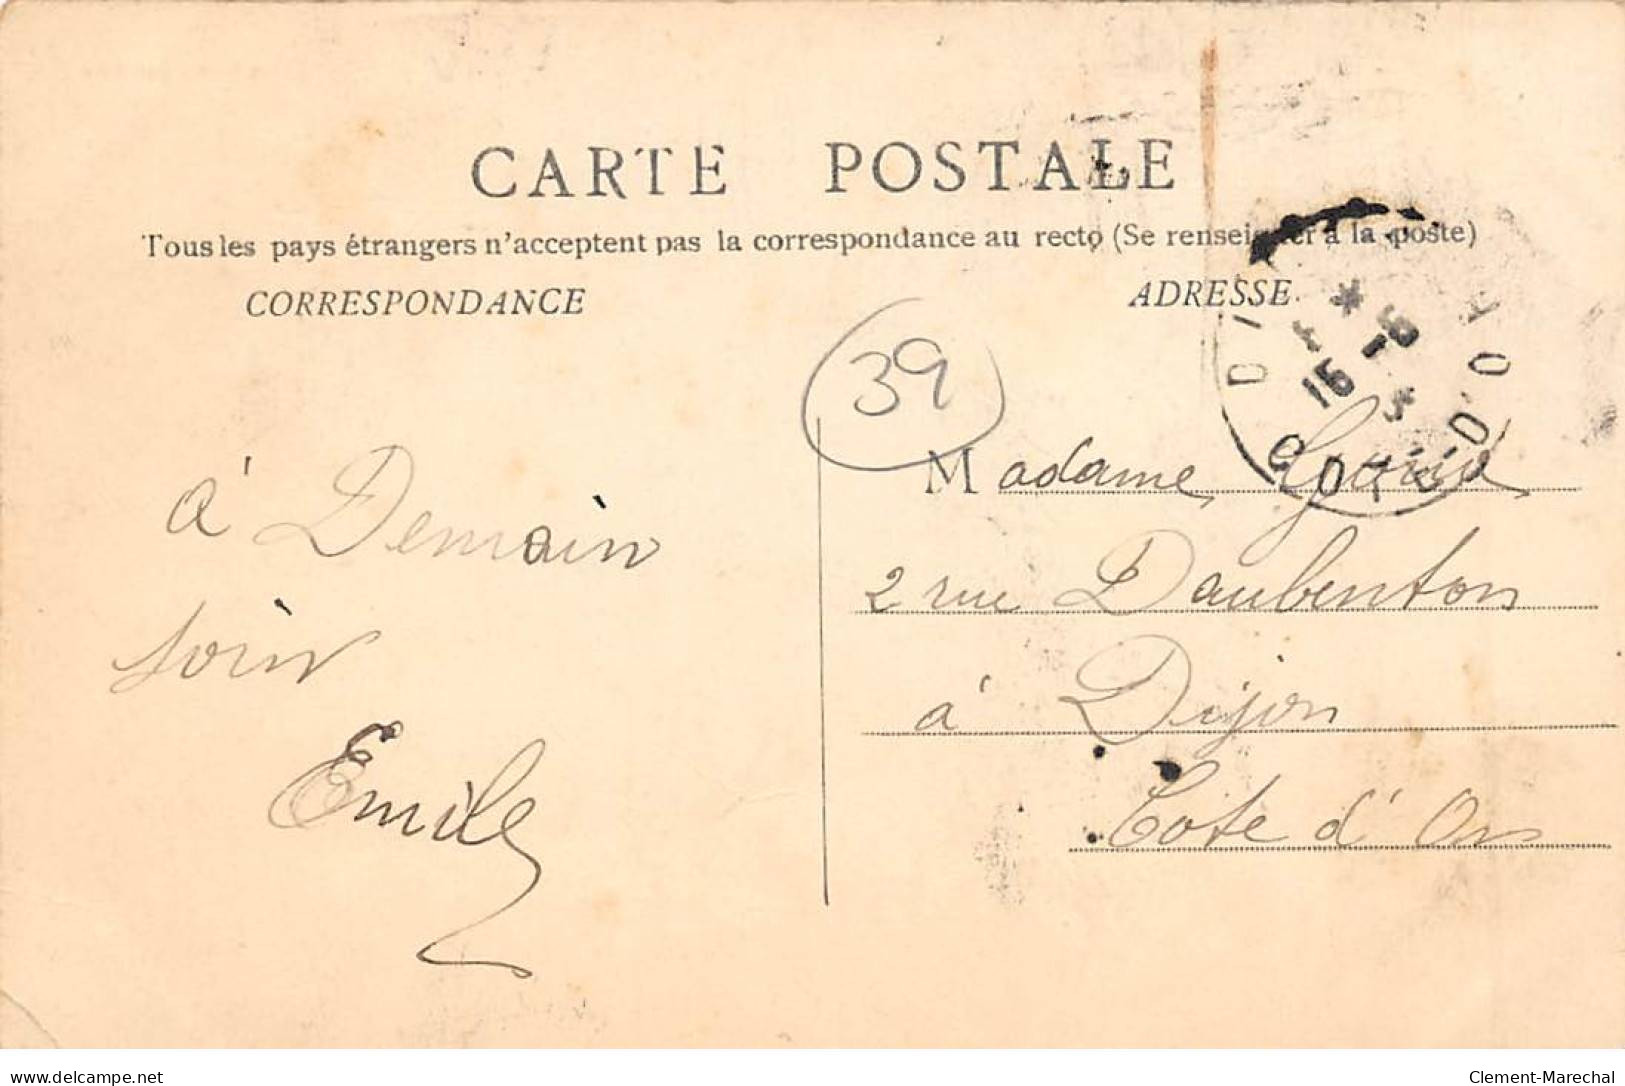 CARTE POSTALE
Tous les pays étrangers n'acceptent pas la correspondance au recto (Se renseigner à la poste)
CORRESPONDANCE
ADRESSE
39
à Demain
soir
Emile
Madame
2 rue Daubenton
à Dijon
Cote d'Or
delcampe.net
Clement-Marechal